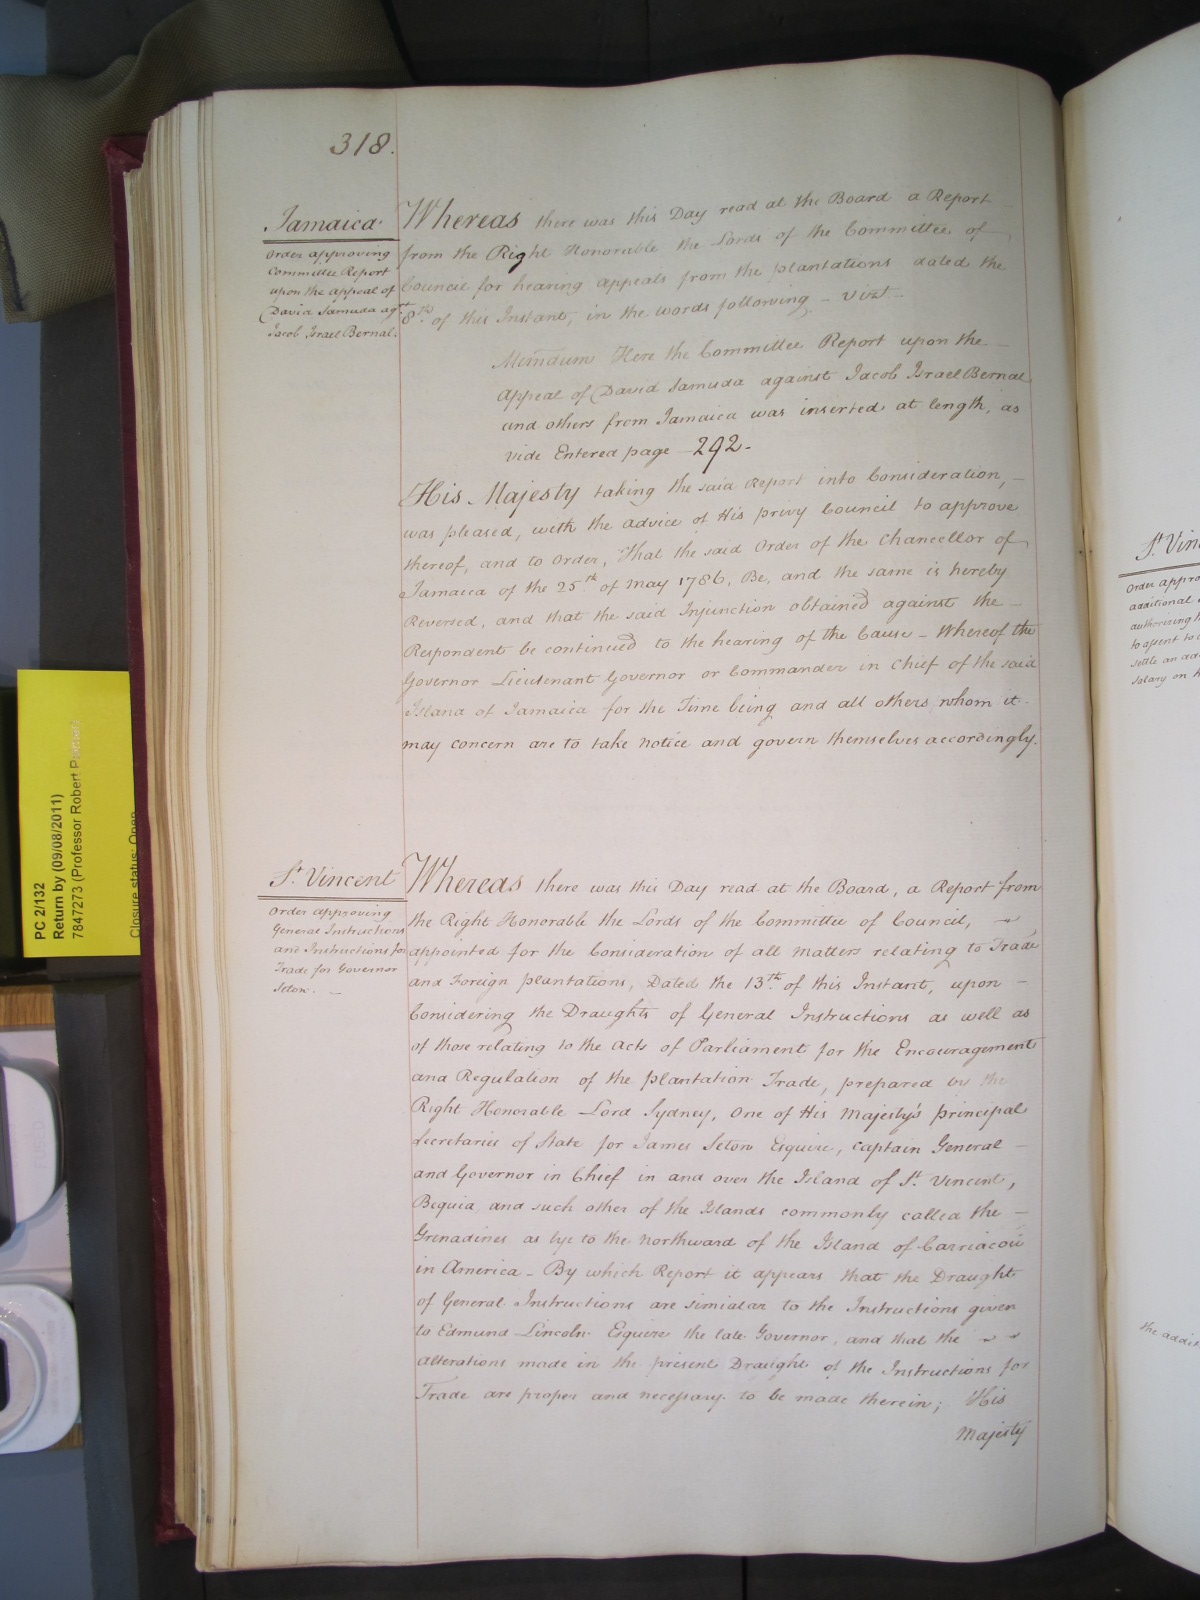 318.
Jamaica.
Order approving
Committee Report
upon the appeal of
David Samuda agst
Jacob Israel Bernal.
Whereas there was this Day read at the Board a Report
from the Right Honorable the Lords of the Committee of
Council for hearing appeals from the plantations dated the
8th. of this Instant, in the words following - vizt.
Memdum Here the Committee Report upon the
appeal of David Samuda against Jacob Israel Bernal
and others from Jamaica was inserted at length, as
vide Entered page 292.
His Majesty taking the said Report into Consideration,
was pleased, with the advice of His privy Council to approve
thereof, and to Order, That the said Order of the Chancellor of
Jamaica of the 25th of May 1786, Be, and the same is hereby
Reversed, and that the said Injunction obtained against the
Respondent be continued to the hearing of the Cause - Whereof the
Governor Lieutenant Governor or Commander in Chief of the said
Island of Jamaica for the Time being and all others whom it
may concern are to take notice and govern themselves accordingly.
St. Vincent
Order approving
General Instructions
and Instructions for
Trade for Governor
Seton. -
Whereas there was this Day read at the Board, a Report from
the Right Honorable the Lords of the Committee of Council,
appointed for the Consideration of all matters relating to Trade
and Foreign plantations, Dated the 13th. of this Instant, upon -
Considering the Draughts of General Instructions as well as
of those relating to the Acts of Parliament for the Encouragement
and Regulation of the plantation Trade, prepared by the
Right Honorable Lord Sydney, One of His Majesty's principal
Secretaries of State for James Seton Esquire, Captain General -
and Governor in Chief in and over the Island of St. Vincent,
Bequia, and such other of the Islands commonly called the -
Grenadines as lye to the northward of the Island of Carriacou
in America - By which Report it appears that the Draught
of General Instructions are similar to the Instructions given
to Edmund Lincoln Esquire the late Governor, and that the
alterations made in the present Draught of the Instructions for
Trade are proper and necessary to be made therein; His
Majesty
PC 2/132
Return by (09/08/2011)
7847273 (Professor Robert
Closure status: Open
St. Vin
Order appro
additional
authorizing
to assent to
settle an add
salary on
the addit